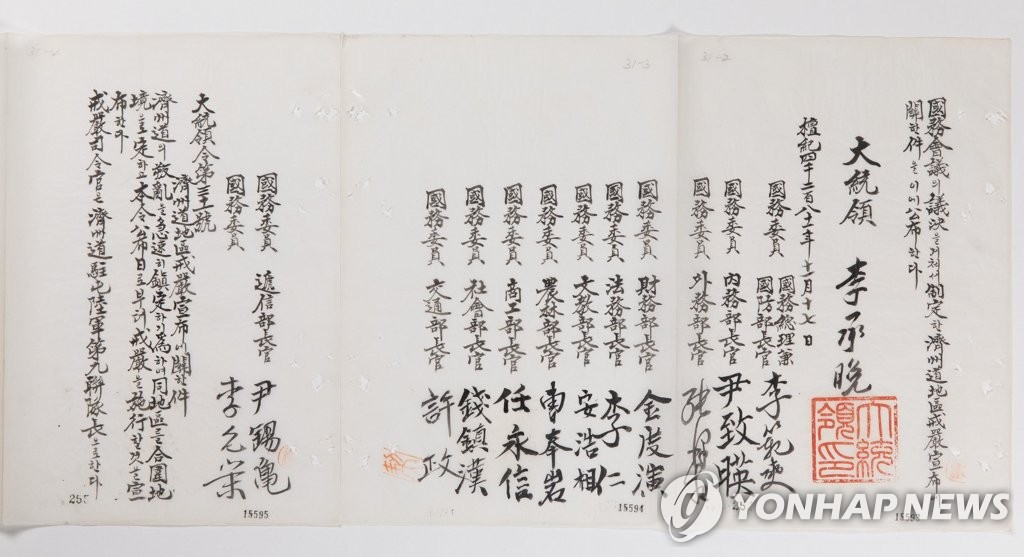 31-2
國務會議의議決을거쳐서制定한濟州道地區戒嚴宣布에
關한件을이에公布한다
大統領 李承晩
大統領印
檀紀四千二百八十一年十一月十七日
國務委員 國務總理兼
國防部長官 李範奭
國務委員 內務部長官 尹致暎
國務委員 外務部長官
31-3
國務委員 財務部長官 金度演
國務委員 法務部長官 李仁
國務委員 文敎部長官 安浩相
國務委員 農林部長官 曺奉岩
國務委員 商工部長官 任永信
國務委員 社會部長官 錢鎭漢
國務委員 交通部長官 許政
15594
國務委員 遞信部長官 尹錫龜
國務委員 李允榮
大統領令第三十一號
濟州道地區戒嚴宣布에關한件
濟州道의叛亂을急速히鎭定하기爲하여同地區를合圍地
境으로定하고本令公布日로부터戒嚴을施行할것을宣
布한다
戒嚴司令官은濟州道駐屯陸軍第九聯隊長으로한다
15595
YONHAP NEWS